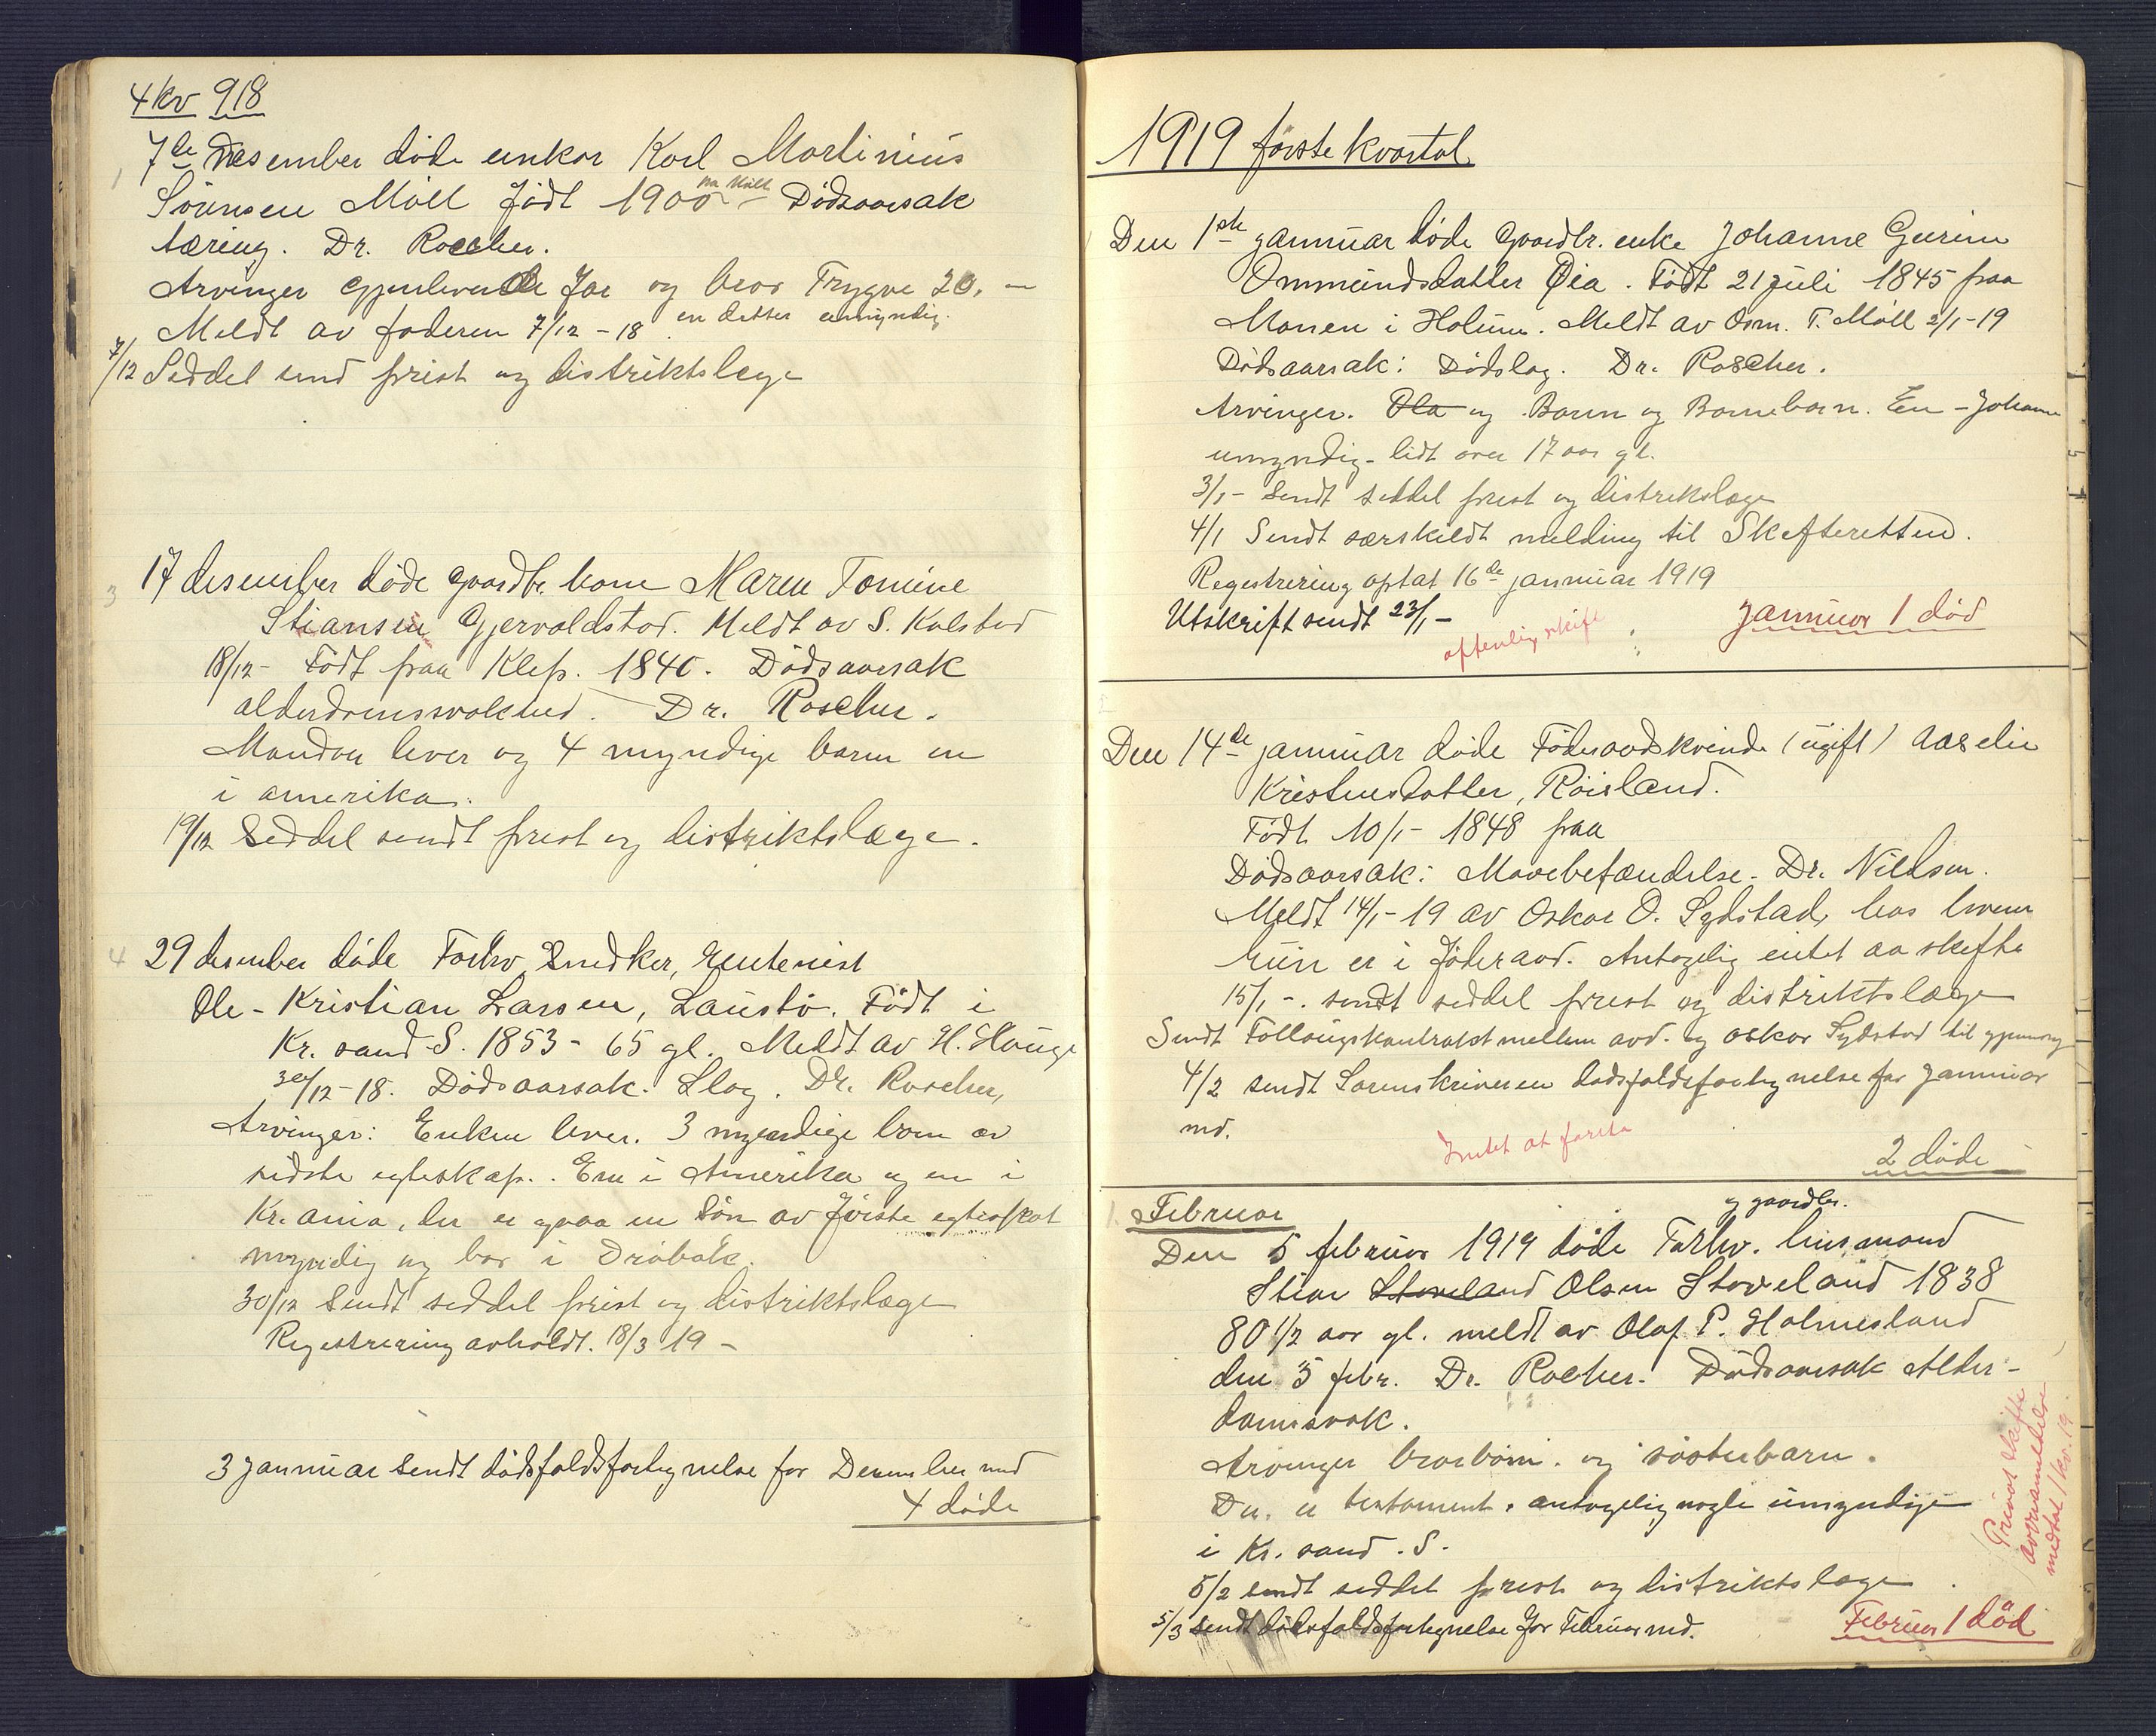 4 kv 918
1 7de Desember døde unkar Karl Martinius
Sørensen Møll født 1900 paa Møll Dødsaarsak
tæring. Dr. Roscher.
Arvinger gjenlevende far og bror Trygve 20. -
en datter umyndig.
Meldt av faderen 7/12 - 18.
7/12 Seddel send prest og distriktslege
3 17 desember døde gaardbr. kone Maren Tomine
Stiansen Gjervoldstad. Meldt av S. Kolstad
18/12 - Født paa Klep. 1840. Dødsaarsak
alderdomssvakhed. Dr. Roscher.
Manden lever og 4 myndige barn en
i amerika.
19/12 Seddel sendt prest og distriktslæge.
4 29 desember døde Forhv Snedker, rentenist
Ole - Kristian Larsen, Lausto. Født i
Kr. sand S. 1853 - 65 gl. Meldt av H. Hauge
30/12 - 18. Dødsaarsak. Slag. Dr. Roscher,
Arvinger: Enken lever. 3 myndige barn av
sidste egteskap. En i Amerika og en i
Kr. ania, der er ogsaa en søn av første egteskat
myndig og bor i Drøbak.
30/12 Sendt seddel prest og distriktslæge
Regestrering avholdt. 18/3 19 -
3 januar sendt dødsfaldsfortegnelse for Desember md
4 døde
1919 første kvartal
Den 1ste januar døde gaardbr. enke Johanne Geirine
Ommundsdatter Øia. Født 21 juli 1845 paa
Monen i Holum. Meldt av Osm. T. Møll 2/1 - 19
Dødsaarsak: Dødslag. Dr. Roscher.
Arvinger. Ola og Barn og Barnebarn. En - Johanne
umyndig - lidt over 17 aar gl.
3/1 - Sendt seddel prest og distrikslæge
4/1 Sendt særskildt melding til Skefteretten.
Regestrering optat 16de januar 1919
Utskrift sendt 23/1 -
offenlig skifte
Januar 1 død
Den 14de januar døde Føderaadskvinde (ugift) Aaselie
Kristensdatter, Røisland.
Født 10/1 - 1848 paa
Dødsaarsak: Mavebetændelse. Dr. Nilsen.
Meldt 14/1 - 19 av Oskar O. Sydstad, hos hvem
hun er i føderaad. Antagelig intet aa skefte
15/1 -. sendt seddel prest og distriktslæge
Sendt Følloiugskontrakt mellem avd. og Oskar Sydstad til
4/2 sendt Sorenskriveren dødsfaldsfortegnelse for Januar
md.
Intet at foreta
2 døde
Februar
og gaardbr.
Den 5 februar 1919 døde Forhv. husmand
Stian Stoveland Olsen Stoveland 1838
80 1/2 aar gl. meldt av Olaf P. Holmesland
den 5 febr. Dr. Rocher. Dødsaarsak Alder-
domssvak.
Arvinger brorbørn. og søsterbarn.
Der er testament. antagelig nogle umyndige
i Kr. sand. S.
5/2 sendt seddel prest og distriktslæge
5/3 Sendt dødsfaldsfortegnelse for Februar md.
Februar 1 død
Privat skifte
medtat 1 kv. 19.